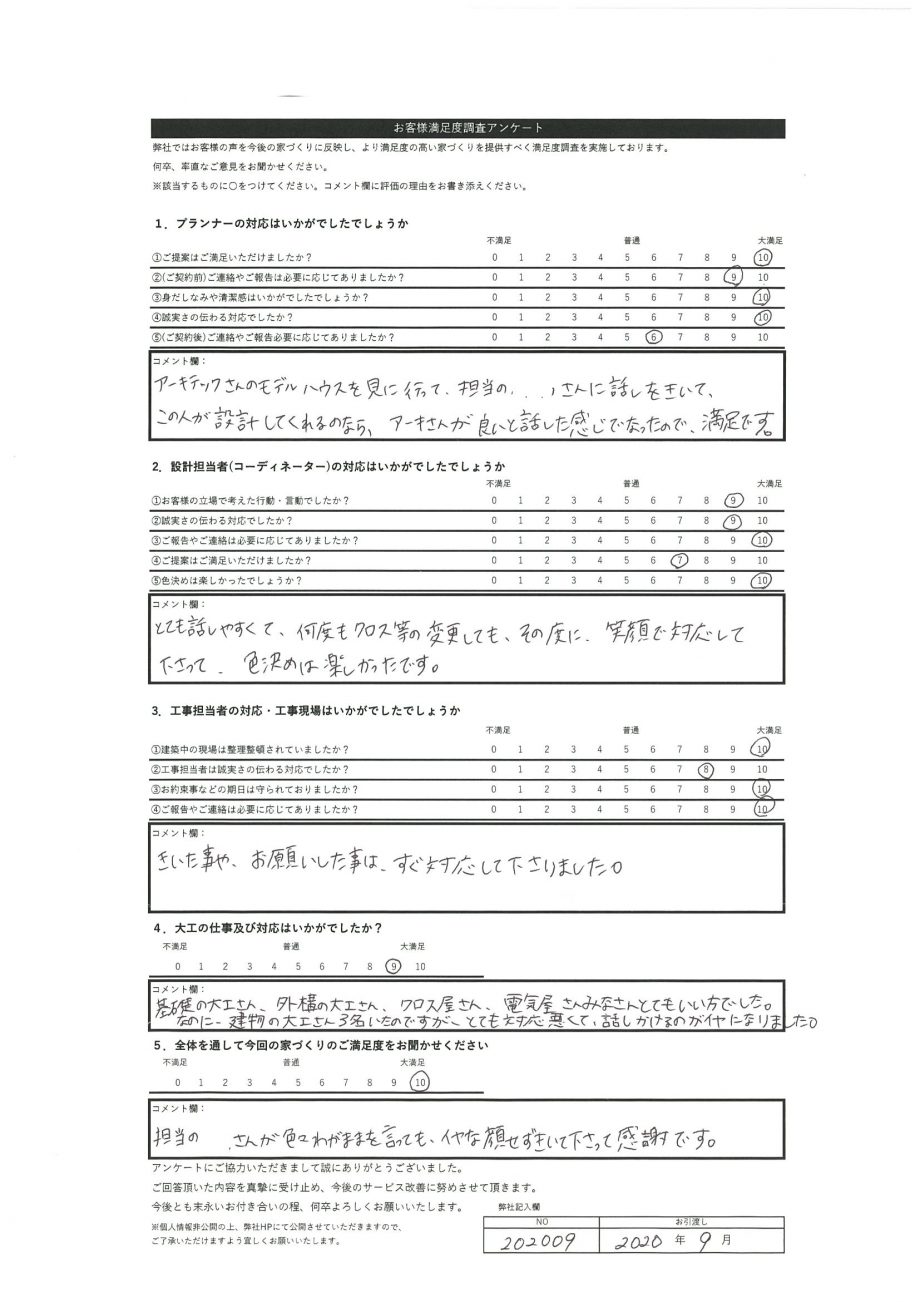 お客様満足度調査アンケート
弊社ではお客様の声を今後の家づくりに反映し、より満足度の高い家づくりを提供すべく満足度調査を実施しております。
何卒、率直なご意見をお聞かせください。
※該当するものに〇をつけてください。コメント欄に評価の理由をお書き添えください。
1．プランナーの対応はいかがでしたでしょうか
不満足 普通 大満足
①ご提案はご満足いただけましたか？ 0 1 2 3 4 5 6 7 8 9 10
②(ご契約前)ご連絡やご報告は必要に応じてありましたか？ 0 1 2 3 4 5 6 7 8 9 10
③身だしなみや清潔感はいかがでしたでしょうか？ 0 1 2 3 4 5 6 7 8 9 10
④誠実さの伝わる対応でしたか？ 0 1 2 3 4 5 6 7 8 9 10
⑤(ご契約後)ご連絡やご報告必要に応じてありましたか？ 0 1 2 3 4 5 6 7 8 9 10
コメント欄：
アーキテックさんのモデルハウスを見に行って、担当の さんに話しをきいて、
この人が設計してくれるのなら、アーキさんが良いと話した感じでなったので、満足です。
2．設計担当者(コーディネーター)の対応はいかがでしたでしょうか
不満足 普通 大満足
①お客様の立場で考えた行動・言動でしたか？ 0 1 2 3 4 5 6 7 8 9 10
②誠実さの伝わる対応でしたか？ 0 1 2 3 4 5 6 7 8 9 10
③ご報告やご連絡は必要に応じてありましたか？ 0 1 2 3 4 5 6 7 8 9 10
④ご提案はご満足いただけましたか？ 0 1 2 3 4 5 6 7 8 9 10
⑤色決めは楽しかったでしょうか？ 0 1 2 3 4 5 6 7 8 9 10
コメント欄：
とても話しやすくて、何度もクロス等の変更しても、その度に、笑顔で対応して
下さって、色決めは楽しかったです。
3．工事担当者の対応・工事現場はいかがでしたでしょうか
不満足 普通 大満足
①建築中の現場は整理整頓されていましたか？ 0 1 2 3 4 5 6 7 8 9 10
②工事担当者は誠実さの伝わる対応でしたか？ 0 1 2 3 4 5 6 7 8 9 10
③お約束事などの期日は守られておりましたか？ 0 1 2 3 4 5 6 7 8 9 10
④ご報告やご連絡は必要に応じてありましたか？ 0 1 2 3 4 5 6 7 8 9 10
コメント欄：
きいた事や、お願いした事は、すぐ対応して下さりました。
4．大工の仕事及び対応はいかがでしたか？
不満足 普通 大満足
0 1 2 3 4 5 6 7 8 9 10
コメント欄：
基礎の大工さん、外構の大工さん、クロス屋さん、電気屋さんみなさんとてもいい方でした。
なのに、建物の大工さん3名いたのですが、とても対応悪くて、話しかけるのがイヤになりました。
5．全体を通して今回の家づくりのご満足度をお聞かせください
不満足 普通 大満足
0 1 2 3 4 5 6 7 8 9 10
コメント欄：
担当の さんが色々わがままを言っても、イヤな顔せずきいて下さって感謝です。
アンケートにご協力いただきまして誠にありがとうございました。
ご回答頂いた内容を真摯に受け止め、今後のサービス改善に努めさせて頂きます。
今後とも末永いお付き合いの程、何卒よろしくお願いいたします。 弊社記入欄
※個人情報非公開の上、弊社HPにて公開させていただきますので、
ご了承いただけますよう宜しくお願いいたします。
NO お引渡し
202009 2020 年 9 月